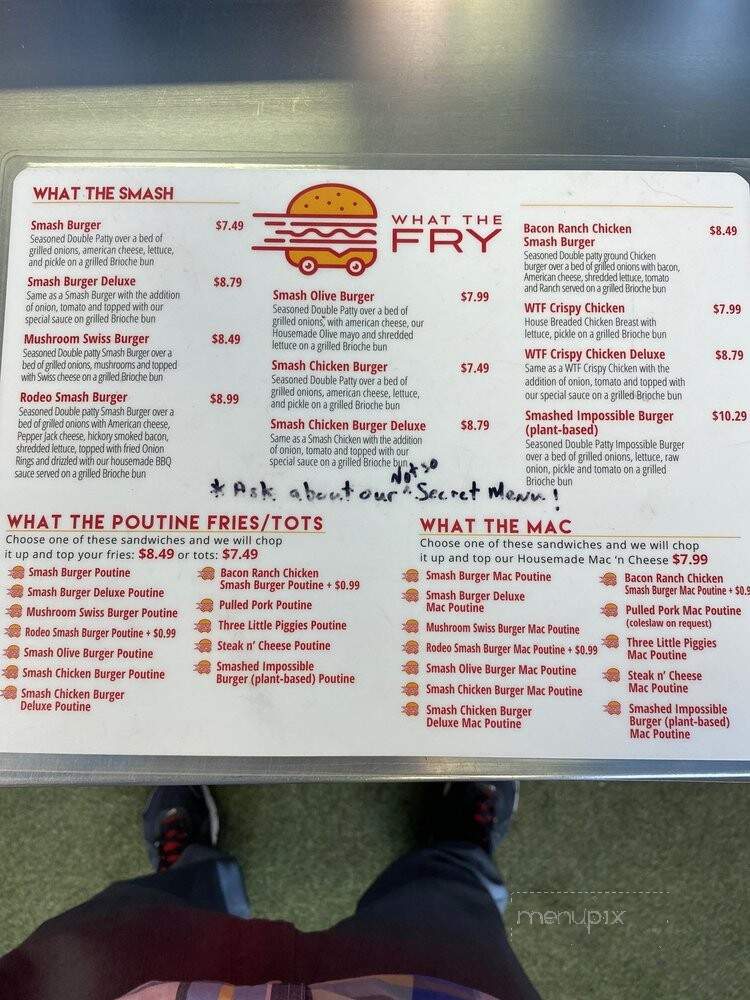 WHAT THE SMASH
Smash Burger $7.49
Seasoned Double Patty over a bed of
grilled onions, american cheese, lettuce,
and pickle on a grilled Brioche bun
Smash Burger Deluxe $8.79
Same as a Smash Burger with the addition
of onion, tomato and topped with our
special sauce on grilled Brioche bun
Mushroom Swiss Burger $8.49
Seasoned Double patty Smash Burger over a
bed of grilled onions, mushrooms and topped
with Swiss cheese on a grilled Brioche bun
Rodeo Smash Burger $8.99
Seasoned Double patty Smash Burger over a
bed of grilled onions with American cheese,
Pepper Jack cheese, hickory smoked bacon,
shredded lettuce, topped with fried Onion
Rings and drizled with our housemade BBQ
sauce served on a grilled Brioche bun
WHAT THE
FRY
Smash Olive Burger $7.99
Seasoned Double Patty over a bed of
grilled onions, with american cheese, our
Housemade Olive mayo and shredded
lettuce on a grilled Brioche bun
Smash Chicken Burger $7.49
Seasoned Double Patty over a bed of
grilled onions, american cheese, lettuce,
and pickle on a grilled Brioche bun
Smash Chicken Burger Deluxe $8.79
Same as a Smash Chicken with the addition
of onion, tomato and topped with our
special sauce on a grilled Brioche bun
Bacon Ranch Chicken $8.49
Smash Burger
Seasoned Double patty ground Chicken
burger over a bed of grilled onions with bacon,
American cheese, shredded lettuce, tomato
and Ranch served on a grilled Brioche bun
WTF Crispy Chicken $7.99
House Breaded Chicken Breast with
lettuce, pickle on a grilled Brioche bun
WTF Crispy Chicken Deluxe $8.79
Same as a WTF Crispy Chicken with the
addition of onion, tomato and topped with
our special sauce on a grilled Brioche bun
Smashed Impossible Burger $10.29
(plant-based)
Seasoned Double Patty Impossible Burger
over a bed of grilled onions, lettuce, raw
onion, pickle and tomato on a grilled
Brioche bun
Not so
* Ask about our ^ Secret Menu!
WHAT THE POUTINE FRIES/TOTS
Choose one of these sandwiches and we will chop
it up and top your fries: $8.49 or tots: $7.49
Smash Burger Poutine
Smash Burger Deluxe Poutine
Mushroom Swiss Burger Poutine
Rodeo Smash Burger Poutine + $0.99
Smash Olive Burger Poutine
Smash Chicken Burger Poutine
Smash Chicken Burger
Deluxe Poutine
Bacon Ranch Chicken
Smash Burger Poutine + $0.99
Pulled Pork Poutine
Three Little Piggies Poutine
Steak n' Cheese Poutine
Smashed Impossible
Burger (plant-based) Poutine
WHAT THE MAC
Choose one of these sandwiches and we will chop
it up and top our Housemade Mac 'n Cheese $7.99
Smash Burger Mac Poutine
Smash Burger Deluxe
Mac Poutine
Mushroom Swiss Burger Mac Poutine
Rodeo Smash Burger Mac Poutine + $0.99
Smash Olive Burger Mac Poutine
Smash Chicken Burger Mac Poutine
Smash Chicken Burger
Deluxe Mac Poutine
Bacon Ranch Chicken
Smash Burger Mac Poutine + $0.9
Pulled Pork Mac Poutine
(coleslaw on request)
Three Little Piggies
Mac Poutine
Steak n' Cheese
Mac Poutine
Smashed Impossible
Burger (plant-based)
Mac Poutine
menupix